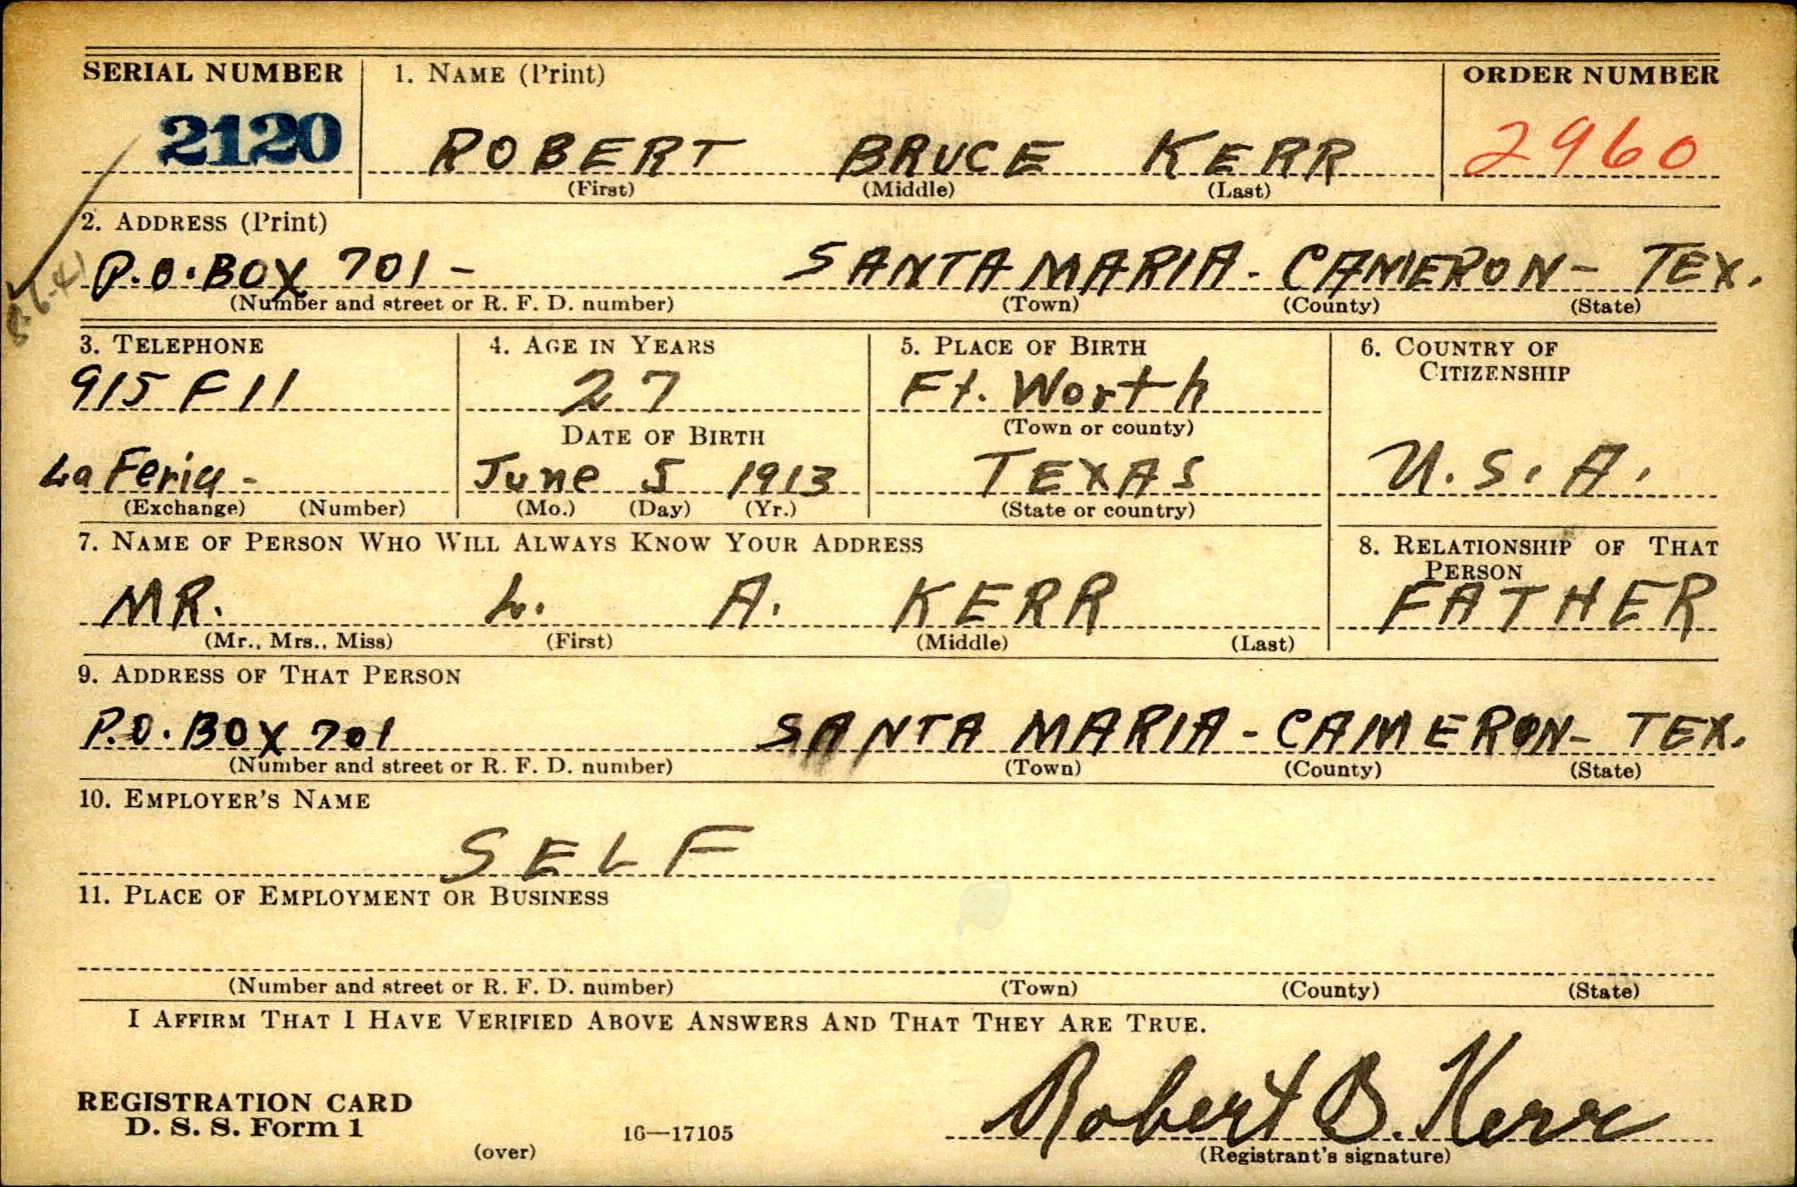 SERIAL NUMBER 1. NAME (Print) ORDER NUMBER
2120 ROBERT BRUCE KERR 2960
(First) (Middle) (Last)
2. ADDRESS (Print)
P.O. BOX 701 - SANTA MARIA - CAMERON - TEX.
(Number and street or R. F. D. number) (Town) (County) (State)
3. TELEPHONE 4. AGE IN YEARS 5. PLACE OF BIRTH 6. COUNTRY OF
CITIZENSHIP
915 F 11 27 Ft. Worth
DATE OF BIRTH (Town or county)
La Feria - June 5 1913 TEXAS U.S.A.
(Exchange) (Number) (Mo.) (Day) (Yr.) (State or country)
7. NAME OF PERSON WHO WILL ALWAYS KNOW YOUR ADDRESS 8. RELATIONSHIP OF THAT
PERSON
MR. L. A. KERR FATHER
(Mr., Mrs., Miss) (First) (Middle) (Last)
9. ADDRESS OF THAT PERSON
P.O. BOX 701 SANTA MARIA - CAMERON - TEX.
(Number and street or R. F. D. number) (Town) (County) (State)
10. EMPLOYER'S NAME
SELF
11. PLACE OF EMPLOYMENT OR BUSINESS
(Number and street or R. F. D. number) (Town) (County) (State)
I AFFIRM THAT I HAVE VERIFIED ABOVE ANSWERS AND THAT THEY ARE TRUE.
REGISTRATION CARD
D. S. S. Form 1 Robert B. Kerr
(over) 16—17105 (Registrant's signature)